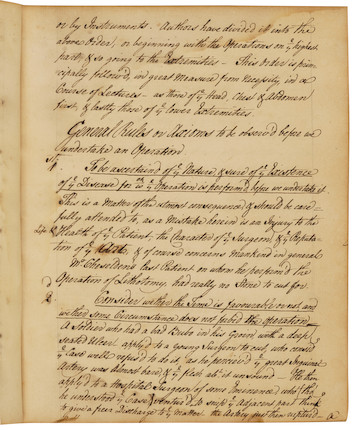 or by Instruments. Authors have divided it into the
above order, or beginning with the Operations on yͤ highest
parts, & so going to the Extremities – This order is prin-
cipally followed, in great measure from necessity in a
Course of Lectures – as those of yͤ Head, chest & Abdomen
first, & lastly those of yͤ lower Extremities.
General Rules or Axioms to be observ'd before we
undertake an Operation
1st
To be ascertained of yͤ Nature & sure of yͤ Existence
of yͤ Disease for wͨʰ yͤ Operation is perform'd before we undertake it.
This is a Matter of the utmost consequence & should be care-
fully attended to, as a Mistake herein is an Injury to the
Health of yͤ Patient, the Character of yͤ Surgeon, & yͤ Reputa-
tion of yͤ & of course concerns Mankind in general
Mr. Cheselden's last Patient on whom he perform'd the
Operation of Lithotomy, had really no Stone to cut for.
2d
Consider whether the Time is favourable or not and
whether some Circumstance does not forbid the Operation –
A Soldier who had a bad Bubo in his Groin with a deep
seated Ulcer applied to a Young Surgeon to cut, who consid'd
yͤ Case well refused to do it, as he perceived yͤ great Inguinal
Artery was almost bare & yͤ flesh abt. it unsound – He then
applied to a Hospital Surgeon of some Eminence who (tho'
he understood yͤ Case) ventur'd to snip yͤ Adjacent part think
to give a free Discharge to yͤ matter the Artery just then ruptured